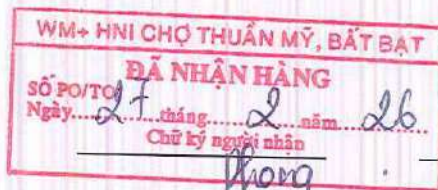 WM+ HNI CHỢ THUẦN MỸ, BẤT BẠT
ĐÃ NHẬN HÀNG
SỐ PO/TO
Ngày....27....tháng....2....năm....26
Chữ ký người nhận
Phong